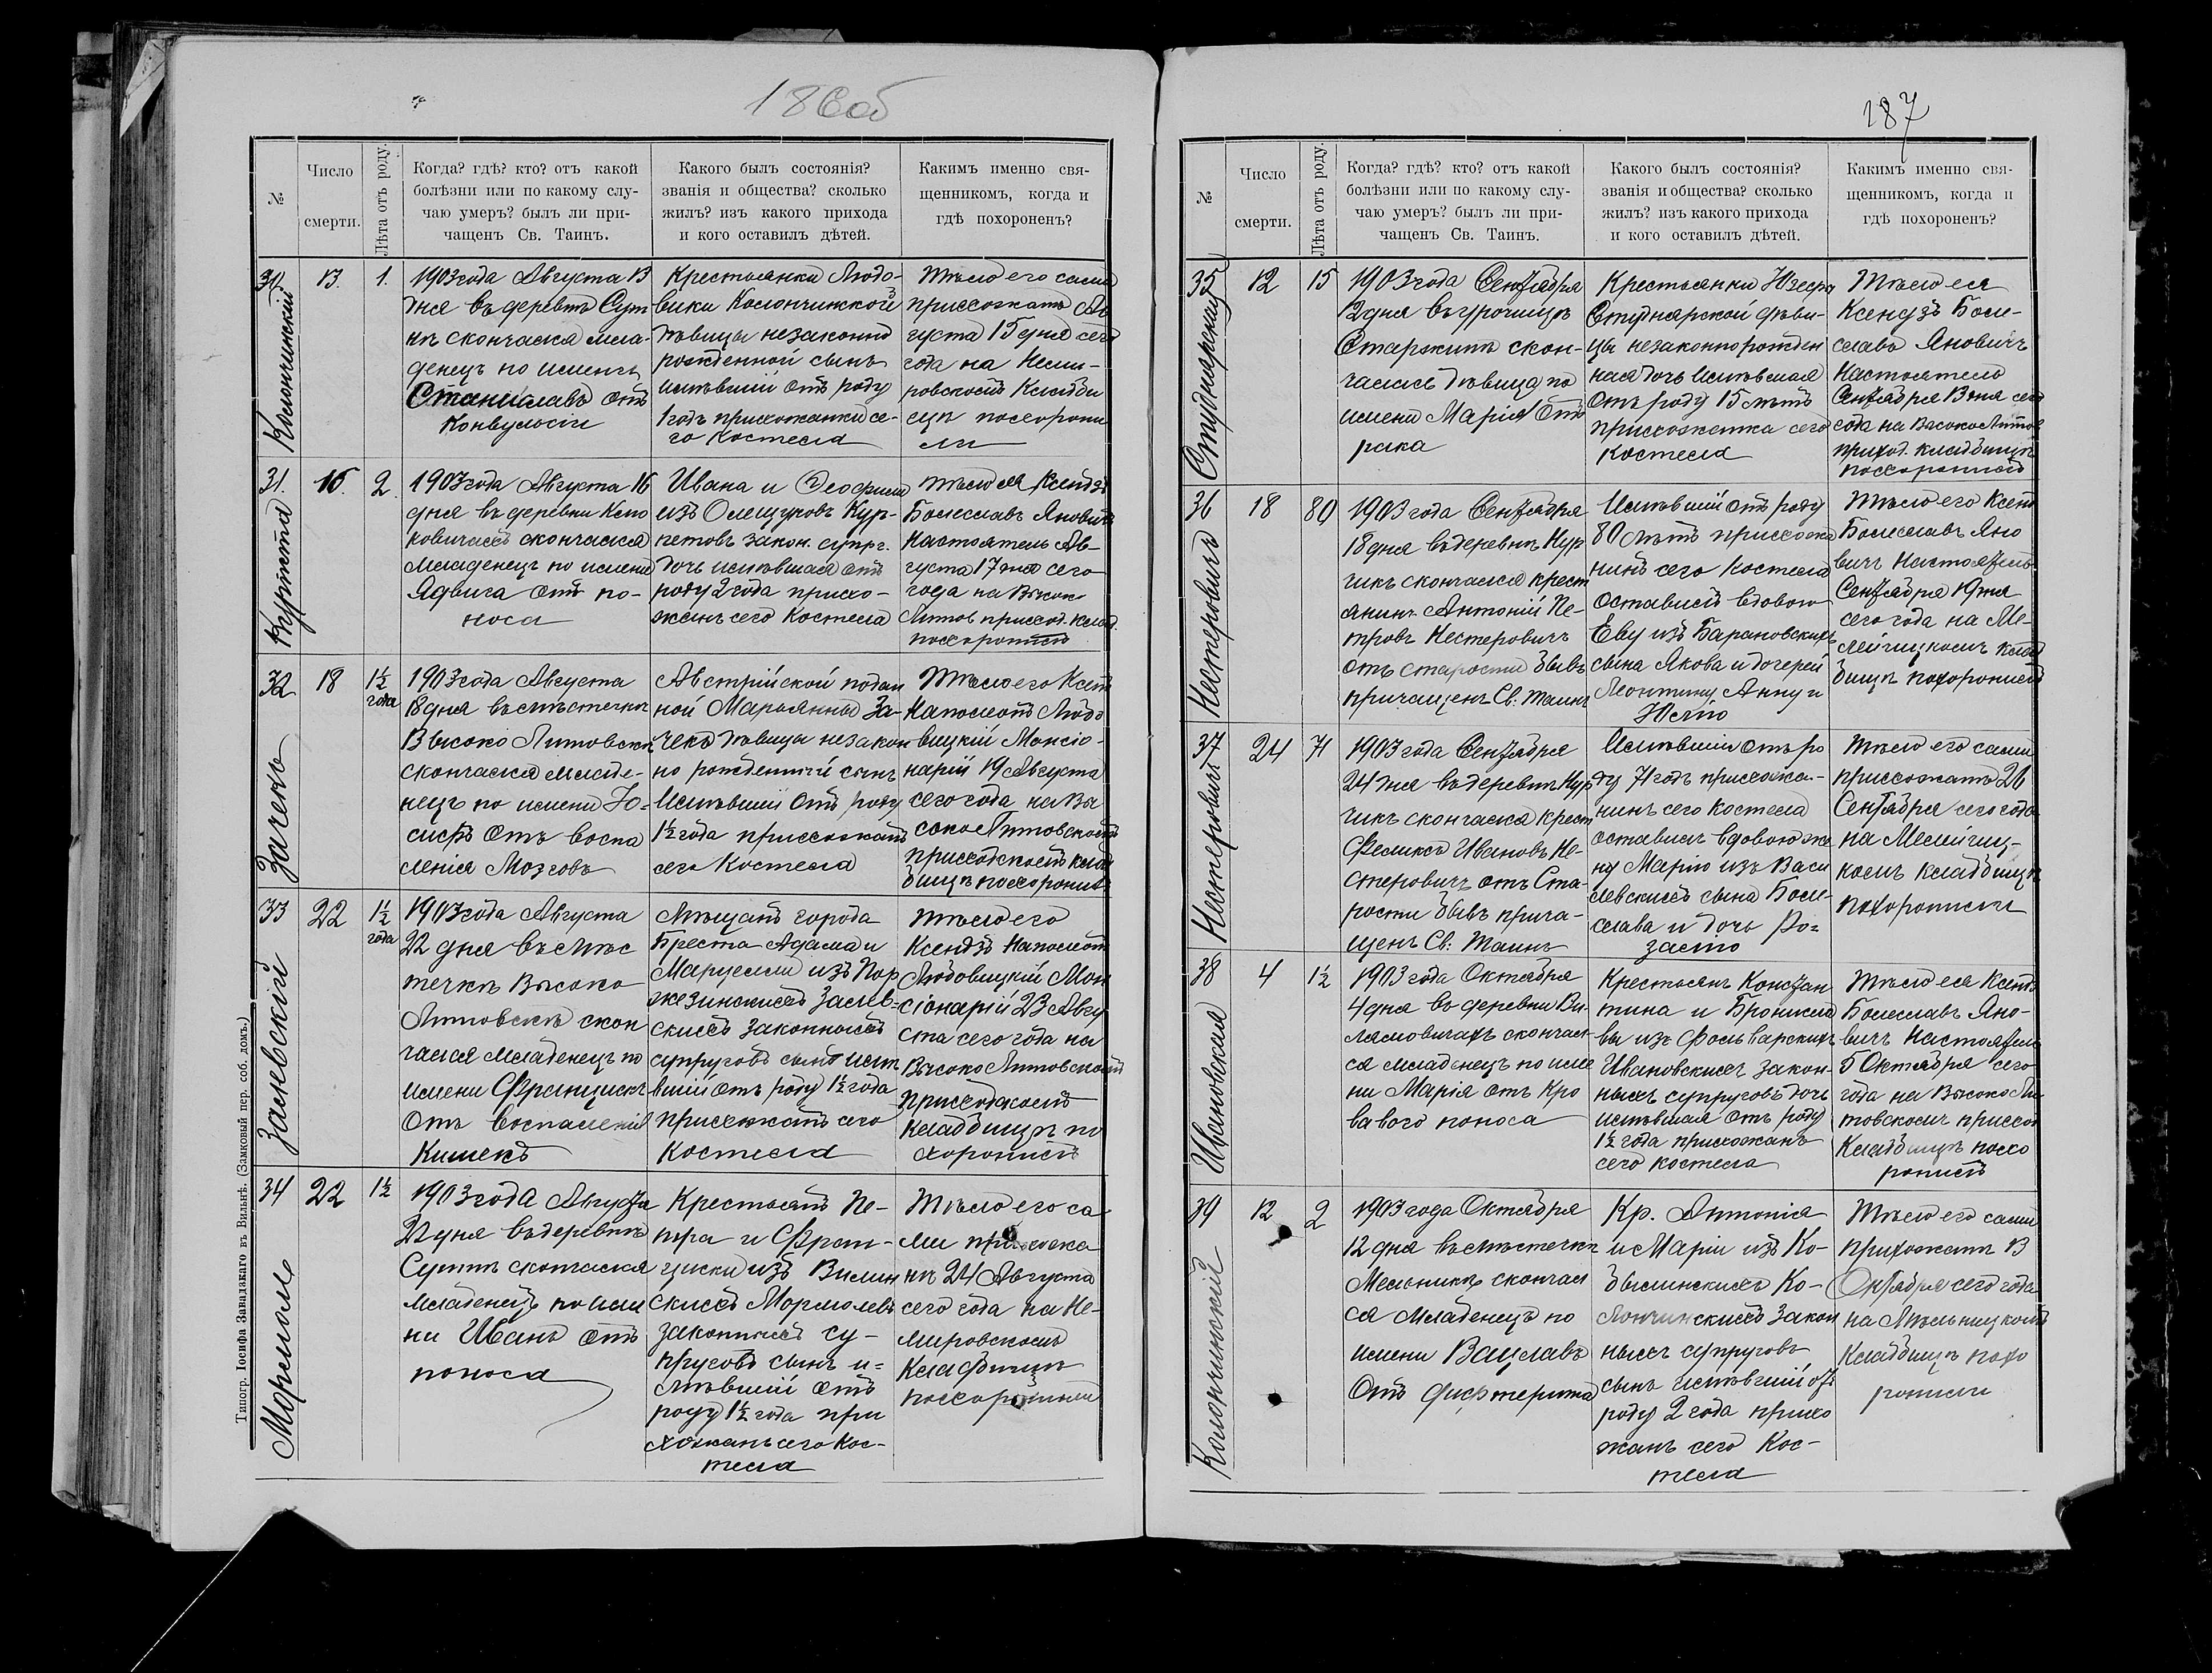 186об
№
Число
смерти.
Лѣта отъ роду.
Когда? гдѣ? кто? отъ какой
болѣзни или по какому слу-
чаю умеръ? былъ ли при-
чащенъ Св. Таинъ.
Какого былъ состоянія?
званія и общества? сколько
жилъ? изъ какого прихода
и кого оставилъ дѣтей.
Какимъ именно свя-
щенникомъ, когда и
гдѣ похороненъ?
30
Колончинскій
13.
1.
1903 года Августа 13
дня въ деревнѣ Сут
нѣ скончался мла-
денецъ по имени
Станиславъ отъ
Конвульсіи
Крестьянки Людо-
вики Колончинской
дѣвицы незаконно
рожденной сынъ
имѣвшій отъ роду
1 годъ прихожанки се-
го Костела
Тѣло его сами
прихожане Ав
густа 15 дня сего
года на Неми-
ровскомъ Кладби
щѣ похорони
ли
31.
Курпета
16.
2.
1903 года Августа 16
дня въ деревни Клю
ковичахъ скончался
Младенецъ по имени
Ядвига отъ по-
носа
Ивана и Теофили
изъ Олещуковъ Кур-
петовъ закон. супрг.
дочь имѣвшая отъ
роду 2 года прихо-
жанъ сего Костела
Тѣло ея Ксендзъ
Болеславъ Яновичъ
Настоятель Ав-
густа 17 дня сего
года на Высок
Литов приход. клад.
похоронилъ
32
Зачекъ
18
1½
года
1903 года Августа
18 дня въ мѣстечкѣ
Высоко Литовскѣ
скончался младе-
нецъ по имени Ю-
сифъ отъ воспа
ленія Мозговъ
Австрійской подан
ной Марьянны За-
чекъ дѣвицы незакон
но рожденный сынъ
Имѣвшій отъ роду
1½ года прихожанъ
сего Костела
Тѣло его Ксен
Наполеонъ Людо
вицкій Мансіо-
нарій 19 Августа
сего года на Вы
соко Литовскомъ
приходскомъ клад
бищѣ похоронилъ
33
Заневскій
22
1½
года
1903 года Августа
22 дня въ мѣс
течкѣ Высоко
Литовскѣ скон
чался младенецъ по
имени Францискъ
Отъ воспаленія
Кишекъ
Мѣщанъ города
Бреста Адама и
Марцелли изъ Пор
жезинскихъ Занев-
скихъ законныхъ
супруговъ сынъ имѣ
вшій отъ роду 1½ года
прихожанъ сего
Костела
Тѣло его
Ксендзъ Наполеонъ
Людовицкій Ман
сіонарій 23 Авгу
ста сего года на
Высоко Литовскомъ
приходскомъ
кладбищѣ по
хоронилъ
34
Мормоль
22
1½
1903 года Августа
22 дня въ деревнѣ
Сутнѣ скончался
Младенецъ по име
ни Иванъ отъ
поноса
Крестьянъ Пе-
тра и Фран-
циски изъ Вилин
скихъ Мормолевъ
законныхъ су-
пруговъ сынъ и-
мѣвшій отъ
роду 1½ года при
хожанъ сего Кос-
тела
Тѣло его са
ми прихожа
не 24 Августа
сего года на Не-
мировскомъ
Кладбищѣ
похоронили
Типогр. Іосифа Завадзкаго въ Вильнѣ. (Замковый пер. соб. домъ.)
187
№
Число
смерти.
Лѣта отъ роду.
Когда? гдѣ? кто? отъ какой
болѣзни или по какому слу-
чаю умеръ? былъ ли при-
чащенъ Св. Таинъ.
Какого былъ состоянія?
званія и общества? сколько
жилъ? изъ какого прихода
и кого оставилъ дѣтей.
Какимъ именно свя-
щенникомъ, когда и
гдѣ похороненъ?
35
Студнярская
12
15
1903 года Сентября
12 дня въ урочищѣ
скон-
чалась дѣвица по
имени Марія отъ
рака
Крестьянки Юзефы
Студнярской дѣви-
цы незаконнорожден
ная дочь имѣвшая
отъ роду 15 лѣтъ
прихожанка сего
костела
Тѣло ея
Ксендзъ Боле-
славъ Яновичъ
Настоятель
Сентября 13 дня сего
года на Высоко Литов
приход. кладбищѣ
похоронилъ
36
Нестеровичъ
18
80
1903 года Сентября
18 дня въ деревнѣ Нур
чикъ скончался крест
янинъ Антоній Пе-
тровъ Нестеровичъ
отъ старости бывъ
причащенъ Св: Таинъ
Имѣвшій отъ роду
80 лѣтъ прихожа
нинъ сего Костела
Оставилъ вдовою
Еву изъ Барановскихъ
сына Якова и дочерей
Леонтину Анну и
Юлію
Тѣло его Ксенд
Болеславъ Яно
вичъ Настоятель
Сентября 19 дня
сего года на Ме-
лейчицкомъ клад
бищѣ похоронилъ
37
Нестеровичъ
24
71
1903 года Сентября
24 дня въ деревнѣ Нур
чикъ скончался крест
Феликсъ Ивановъ Не-
стеровичъ отъ Ста-
рости бывъ прича-
щенъ Св: Таинъ
Имѣвшій отъ ро
ду 71 годъ прихожа-
нинъ сего костела
оставилъ вдовою же
ну Марію изъ Васи
левскихъ сына Боле-
слава и дочь Ро-
залію
Тѣло его сами
прихожане 26
Сентября сего года
на Мелейчиц-
комъ кладбищѣ
похоронили
38
Ивановская
4
1½
1903 года Октября
4 дня въ деревни Ви-
лямовичахъ скончал-
ся младенецъ по име
ни Марія отъ Кро
ваваго поноса
Крестьянъ Констан
тина и Брониcла
вы изъ Фольварскихъ
Ивановскихъ закон-
ныхъ супруговъ дочь
имѣвшая отъ роду
1½ года прихожанъ
сего костела
Тѣло ея Ксендз
Болеславъ Яно-
вичъ Настоятель
5 Октября сего
года на Высоко Ли-
товскомъ приход
Кладбищѣ похо
ронилъ
39
Колончинскій
12
2
1903 года Октября
12 дня въ мѣстечкѣ
Мельникѣ скончал
ся Младенецъ по
имени Вацлавъ
Отъ дифтерита
Кр. Антонія
и Маріи изъ Ко-
былинскихъ Ко-
лончинскихъ закон
ныхъ супруговъ
сынъ имѣвшій отъ
роду 2 года прихо
жанъ сего Кос-
тела
Тѣло его сами
прихожане 13
Октября сего года
на Мѣльницкомъ
Кладбищѣ похо
ронили